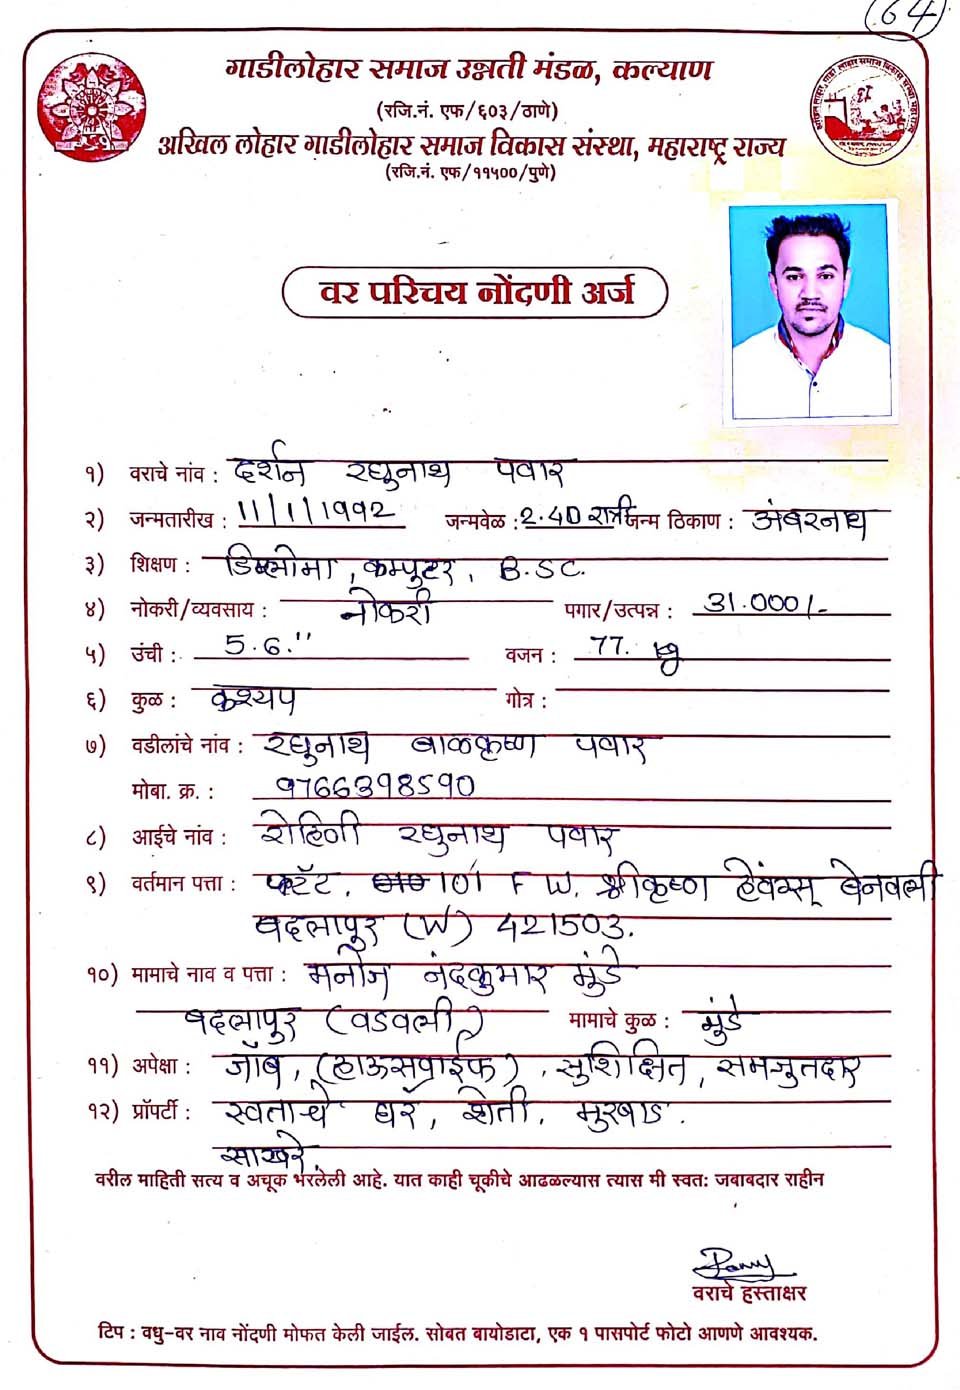 64
गाडीलोहार समाज उन्नती मंडळ, कल्याण
(रजि.नं. एफ/६०३/ठाणे)
अखिल लोहार गाडीलोहार समाज विकास संस्था, महाराष्ट्र राज्य
(रजि.नं. एफ/११५००/पुणे)
वर परिचय नोंदणी अर्ज
१) वराचे नांव : दर्शन रघुनाथ पवार
२) जन्मतारीख : 11/1/1992 जन्मवेळ : 2.40 रात्री जन्म ठिकाण : अंबरनाथ
३) शिक्षण : डिप्लोमा, कम्पुटर, B.SC.
४) नोकरी/व्यवसाय : नोकरी पगार/उत्पन्न : 31.000/-
५) उंची : 5.6." वजन : 77. kg
६) कुळ : कश्यप गोत्र :
७) वडीलांचे नांव : रघुनाथ बाळकृष्ण पवार
मोबा. क्र. : 9766398590
८) आईचे नांव : रोहिणी रघुनाथ पवार
९) वर्तमान पत्ता : फ्लॅट, 101 F W. श्रीकृष्ण हेवंन्स् बेनवली
बदलापुर (W) 421503.
१०) मामाचे नाव व पत्ता : मनोज नंदकुमार मुंडे
बदलापुर (वडवली) मामाचे कुळ : मुंडे
११) अपेक्षा : जॉब, (हाऊसवाईफ), सुशिक्षित, समजुतदार
१२) प्रॉपर्टी : स्वताचे घर, शेती, मुरबाड.
साखरे.
वरील माहिती सत्य व अचूक भरलेली आहे. यात काही चूकीचे आढळल्यास त्यास मी स्वतः जबाबदार राहीन
वराचे हस्ताक्षर
टिप : वधु-वर नाव नोंदणी मोफत केली जाईल. सोबत बायोडाटा, एक १ पासपोर्ट फोटो आणणे आवश्यक.